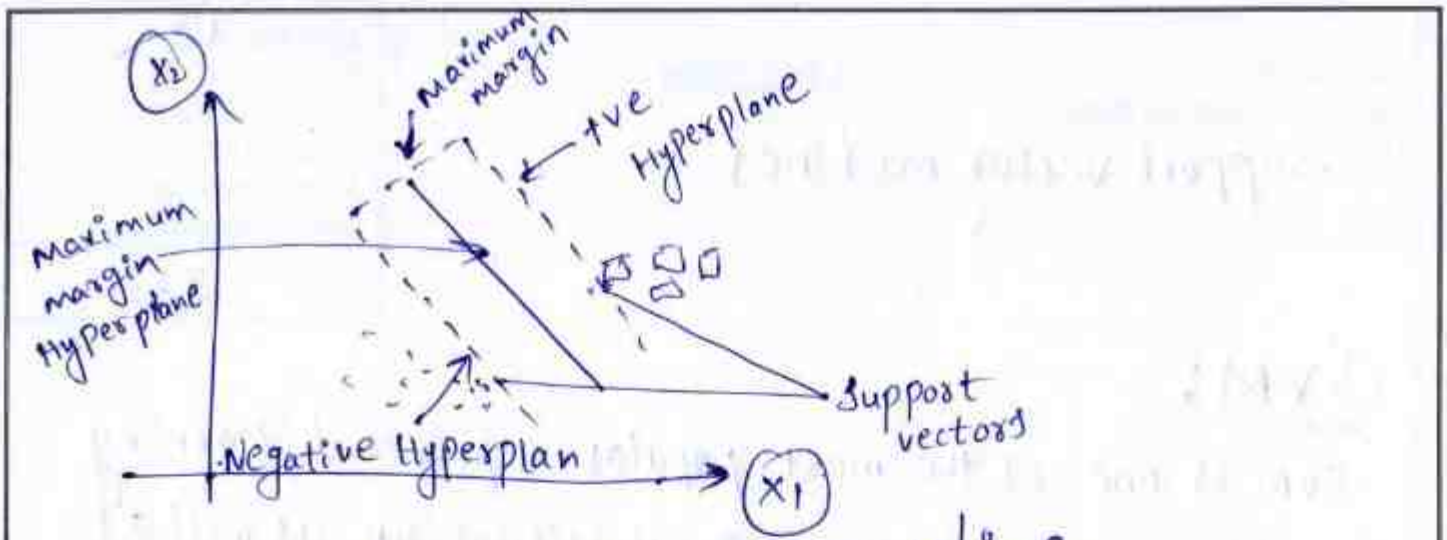 X2
Maximum
margin
+ve
Hyperplane
Maximum
margin
Hyperplane
Support
vectors
Negative Hyperplan
X1